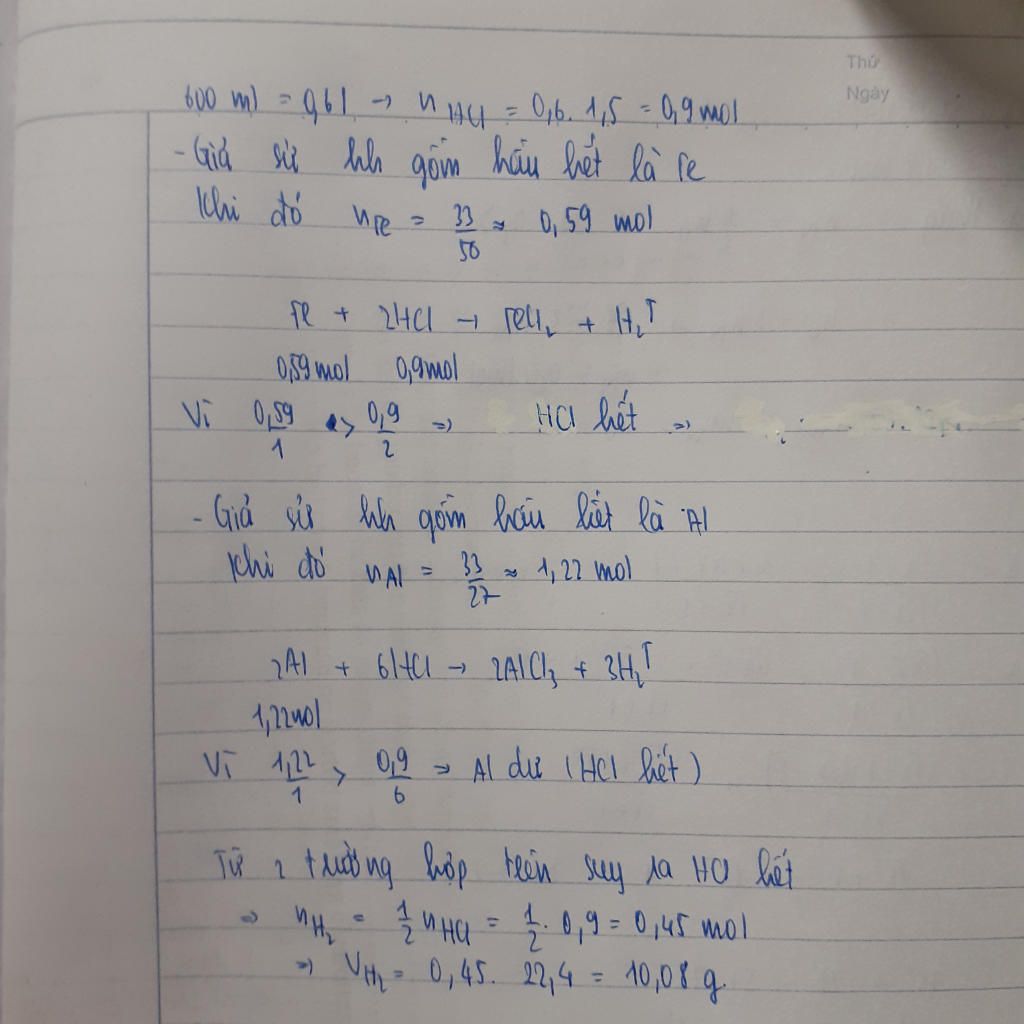 Thứ
Ngày
600 ml = 0,6 l → nHCl = 0,6. 1,5 = 0,9 mol
- Giả sử hh gồm hầu hết là Fe
Khi đó nFe = 33/56 ≈ 0,59 mol
Fe + 2HCl → FeCl2 + H2↑
0,59 mol 0,9 mol
Vì 0,59/1 > 0,9/2 => HCl hết =>
- Giả sử hh gồm hầu hết là Al
Khi đó nAl = 33/27 ≈ 1,22 mol
2Al + 6HCl → 2AlCl3 + 3H2↑
1,22mol
Vì 1,22/1 > 0,9/6 => Al dư (HCl hết)
Từ 2 trường hợp trên suy ra HCl hết
=> nH2 = 1/2 nHCl = 1/2 . 0,9 = 0,45 mol
=> VH2 = 0,45. 22,4 = 10,08 g.